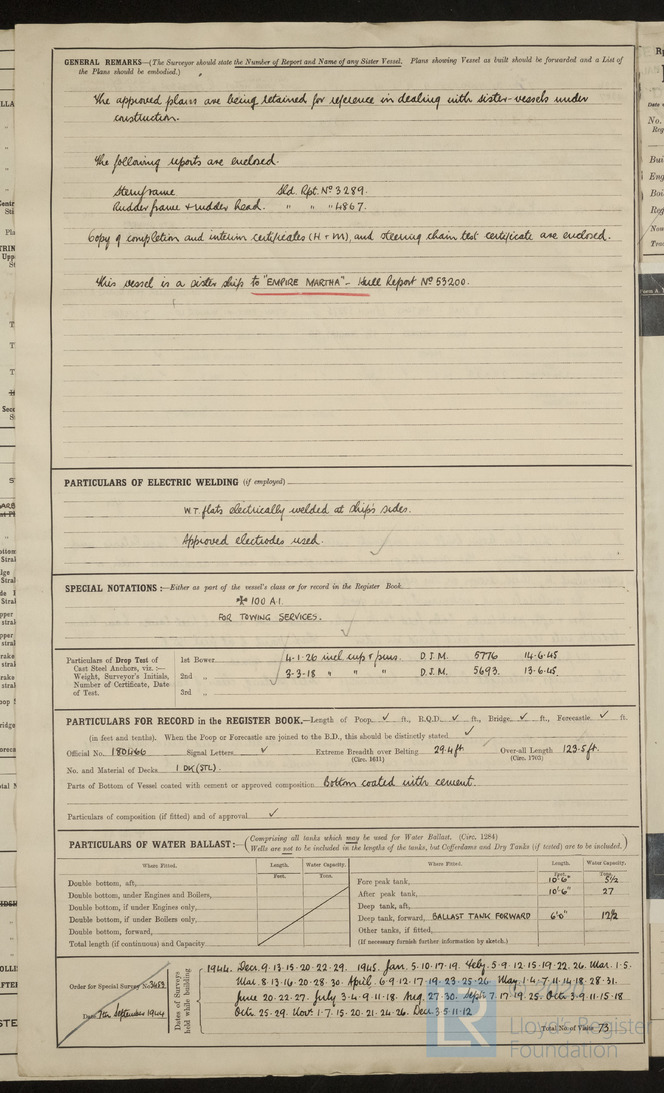 GENERAL REMARKS—(The Surveyor should state the Number of Report and Name of any Sister Vessel. Plans showing Vessel as built should be forwarded and a List of
the Plans should be embodied.)
The approved plans are being retained for reference in dealing with sister-vessels under
construction.
The following reports are enclosed.
Sternframe Sld. Rpt. Nº 3289.
Rudder frame & rudder head. " " " 4867.
Copy of completion and interim certificates (H & M), and steering chain test certificate are enclosed.
This vessel is a sister ship to "EMPIRE MARTHA" - Hull Report Nº 53200.
PARTICULARS OF ELECTRIC WELDING (if employed)
W.T. flats electrically welded at ship's sides.
Approved electrodes used.
SPECIAL NOTATIONS:—Either as part of the vessel's class or for record in the Register Book
✠ 100 A1.
FOR TOWING SERVICES.
Particulars of Drop Test of
Cast Steel Anchors, viz. :—
Weight, Surveyor's Initials,
Number of Certificate, Date
of Test.
1st Bower 4-1-26 incl cup & pins. D.J.M. 5776 14-6-45
2nd " 3-3-18 " " " D.J.M. 5693. 13-6-45
3rd "
PARTICULARS FOR RECORD in the REGISTER BOOK.—Length of Poop ✓ ft., R.Q.D. ✓ ft., Bridge ✓ ft., Forecastle ✓ ft.
(in feet and tenths). When the Poop or Forecastle are joined to the B.D., this should be distinctly stated ✓
Official No. 180466 Signal Letters ✓ Extreme Breadth over Belting 29.4 ft. Over-all Length 123.5 ft.
(Circ. 1611) (Circ. 1703)
No. and Material of Decks 1 DK (STL).
Parts of Bottom of Vessel coated with cement or approved composition Bottom coated with cement.
Particulars of composition (if fitted) and of approval ✓
PARTICULARS OF WATER BALLAST:—(Comprising all tanks which may be used for Water Ballast. (Circ. 1284)
Wells are not to be included in the lengths of the tanks, but Cofferdams and Dry Tanks (if tested) are to be included.)
Where Fitted. Length. Water Capacity. Where Fitted. Length. Water Capacity.
Feet. Tons. Feet. Tons.
Double bottom, aft, Fore peak tank, 10'6" 5½
Double bottom, under Engines and Boilers, After peak tank, 10'6" 27
Double bottom, if under Engines only, Deep tank, aft,
Double bottom, if under Boilers only, Deep tank, forward, BALLAST TANK FORWARD 6'0" 12½
Double bottom, forward, Other tanks, if fitted,
Total length (if continuous) and Capacity (If necessary furnish further information by sketch.)
Order for Special Survey No. 3483
Date 7th September 1944
Dates of Surveys held while building
1944. Dec. 9.13.15.20.22.29. 1945. Jan. 5.10.17.19. Feby. 5.9.12.15.19.22.26. Mar. 1.5.
Mar. 8.13.16.20.28.30. April. 6.9.12.17.19.23.25.26 May. 1.4.7.11.14.18.28.31.
June 20.22.27. July 3.4.9.11.18. Aug. 27.30. Sept. 7.17.19.25. Octr. 3.9.11.15.18
Octr. 25.29. Nov. 1.7.15.20.21.24.26. Dec. 3.5.11.12
Total No. of Visits 73
LR
Lloyd's Register
Foundation